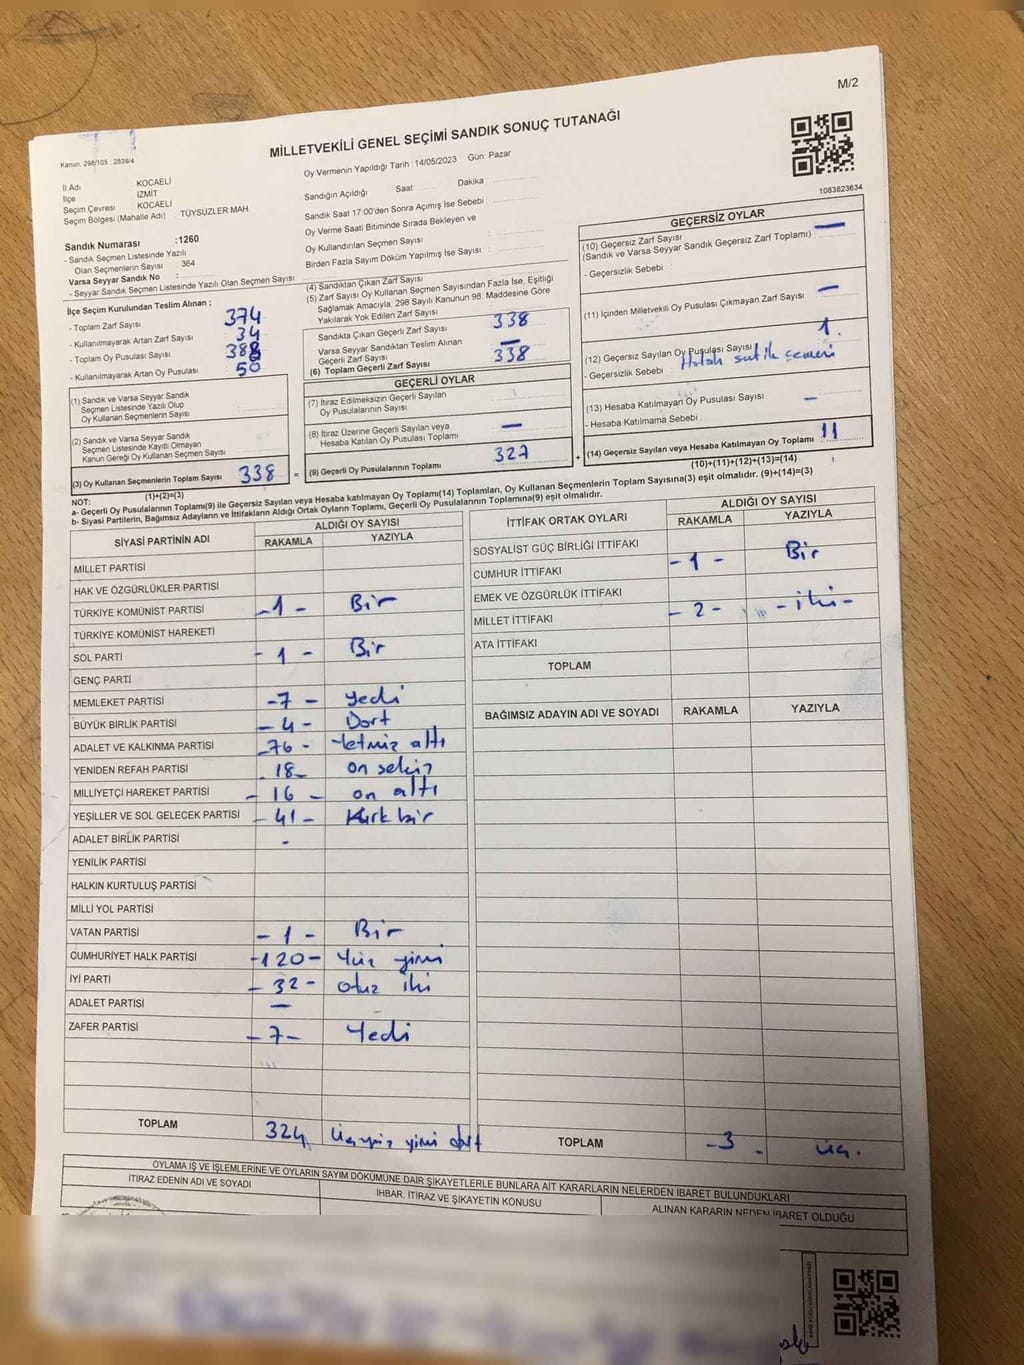 M/2
MİLLETVEKİLİ GENEL SEÇİMİ SANDIK SONUÇ TUTANAĞI
Kanun: 298/105 , 2839/4
1083823634
İl Adı KOCAELİ
İlçe İZMİT
Seçim Çevresi KOCAELİ
Seçim Bölgesi (Mahalle Adı) TÜYSÜZLER MAH
Sandık Numarası :1260
- Sandık Seçmen Listesinde Yazılı
Olan Seçmenlerin Sayısı : 364
Varsa Seyyar Sandık No :
- Seyyar Sandık Seçmen Listesinde Yazılı Olan Seçmen Sayısı:
İlçe Seçim Kurulundan Teslim Alınan ;
- Toplam Zarf Sayısı 374
- Kullanılmayarak Artan Zarf Sayısı 34
- Toplam Oy Pusulası Sayısı 388
- Kullanılmayarak Artan Oy Pusulası 50
(1) Sandık ve Varsa Seyyar Sandık
Seçmen Listesinde Yazılı Olup
Oy Kullanan Seçmenlerin Sayısı
(2) Sandık ve Varsa Seyyar Sandık
Seçmen Listesinde Kayıtlı Olmayan
Kanun Gereği Oy Kullanan Seçmen Sayısı
(3) Oy Kullanan Seçmenlerin Toplam Sayısı 338
(1)+(2)=(3)
Oy Vermenin Yapıldığı Tarih :14/05/2023 Gün: Pazar
Sandığın Açıldığı Saat Dakika :
Sandık Saat 17:00'den Sonra Açımış İse Sebebi :
Oy Verme Saati Bitiminde Sırada Bekleyen ve
Oy Kullandırılan Seçmen Sayısı :
Birden Fazla Sayım Döküm Yapılmış İse Sayısı :
(4) Sandıktan Çıkan Zarf Sayısı
(5) Zarf Sayısı Oy Kullanan Seçmen Sayısından Fazla İse, Eşitliği
Sağlamak Amacıyla, 298 Sayılı Kanunun 98. Maddesine Göre
Yakılarak Yok Edilen Zarf Sayısı :
Sandıkta Çıkan Geçerli Zarf Sayısı 338
Varsa Seyyar Sandıktan Teslim Alınan
Geçerli Zarf Sayısı —
(6) Toplam Geçerli Zarf Sayısı 338
GEÇERLİ OYLAR
(7) İtiraz Edilmeksizin Geçerli Sayılan
Oy Pusulalarının Sayısı
(8) İtiraz Üzerine Geçerli Sayılan veya
Hesaba Katılan Oy Pusulası Toplamı —
= (9) Geçerli Oy Pusulalarının Toplamı 327
GEÇERSİZ OYLAR
(10) Geçersiz Zarf Sayısı —
(Sandık ve Varsa Seyyar Sandık Geçersiz Zarf Toplamı) :
- Geçersizlik Sebebi :
(11) İçinden Milletvekili Oy Pusulası Çıkmayan Zarf Sayısı —
(12) Geçersiz Sayılan Oy Pusulası Sayısı
- Geçersizlik Sebebi :
(13) Hesaba Katılmayan Oy Pusulası Sayısı —
- Hesaba Katılmama Sebebi :
+ (14) Geçersiz Sayılan veya Hesaba Katılmayan Oy Toplamı 11
(10)+(11)+(12)+(13)=(14)
NOT:
a- Geçerli Oy Pusulalarının Toplamı(9) ile Geçersiz Sayılan veya Hesaba katılmayan Oy Toplamı(14) Toplamları, Oy Kullanan Seçmenlerin Toplam Sayısına(3) eşit olmalıdır. (9)+(14)=(3)
b- Siyasi Partilerin, Bağımsız Adayların ve İttifakların Aldığı Ortak Oyların Toplamı, Geçerli Oy Pusulalarının Toplamına(9) eşit olmalıdır.
SİYASİ PARTİNİN ADI ALDIĞI OY SAYISI
RAKAMLA YAZIYLA
MİLLET PARTİSİ
HAK VE ÖZGÜRLÜKLER PARTİSİ
TÜRKİYE KOMÜNİST PARTİSİ -1- Bir
TÜRKİYE KOMÜNİST HAREKETİ
SOL PARTİ -1- Bir
GENÇ PARTİ
MEMLEKET PARTİSİ -7- yedi
BÜYÜK BİRLİK PARTİSİ -4- Dört
ADALET VE KALKINMA PARTİSİ -76- Yetmiz altı
YENİDEN REFAH PARTİSİ 18- on sekiz
MİLLİYETÇİ HAREKET PARTİSİ -16- on altı
YEŞİLLER VE SOL GELECEK PARTİSİ -41- Kırk bir
ADALET BİRLİK PARTİSİ -
YENİLİK PARTİSİ
HALKIN KURTULUŞ PARTİSİ
MİLLİ YOL PARTİSİ
VATAN PARTİSİ -1- Bir
CUMHURİYET HALK PARTİSİ -120- Yüz yirmi
İYİ PARTİ -32- otuz iki
ADALET PARTİSİ —
ZAFER PARTİSİ -7- Yedi
TOPLAM 324 üçyüz yirmi dört
İTTİFAK ORTAK OYLARI ALDIĞI OY SAYISI
RAKAMLA YAZIYLA
SOSYALİST GÜÇ BİRLİĞİ İTTİFAKI
CUMHUR İTTİFAKI -1- Bir
EMEK VE ÖZGÜRLÜK İTTİFAKI
MİLLET İTTİFAKI -2- -iki-
ATA İTTİFAKI
TOPLAM
BAĞIMSIZ ADAYIN ADI VE SOYADI RAKAMLA YAZIYLA
TOPLAM -3- üç.
OYLAMA İŞ VE İŞLEMLERİNE VE OYLARIN SAYIM DÖKÜMÜNE DAİR ŞİKAYETLERLE BUNLARA AİT KARARLARIN NELERDEN İBARET BULUNDUKLARI
İTİRAZ EDENİN ADI VE SOYADI İHBAR, İTİRAZ VE ŞİKAYETİN KONUSU ALINAN KARARIN NEDEN İBARET OLDUĞU